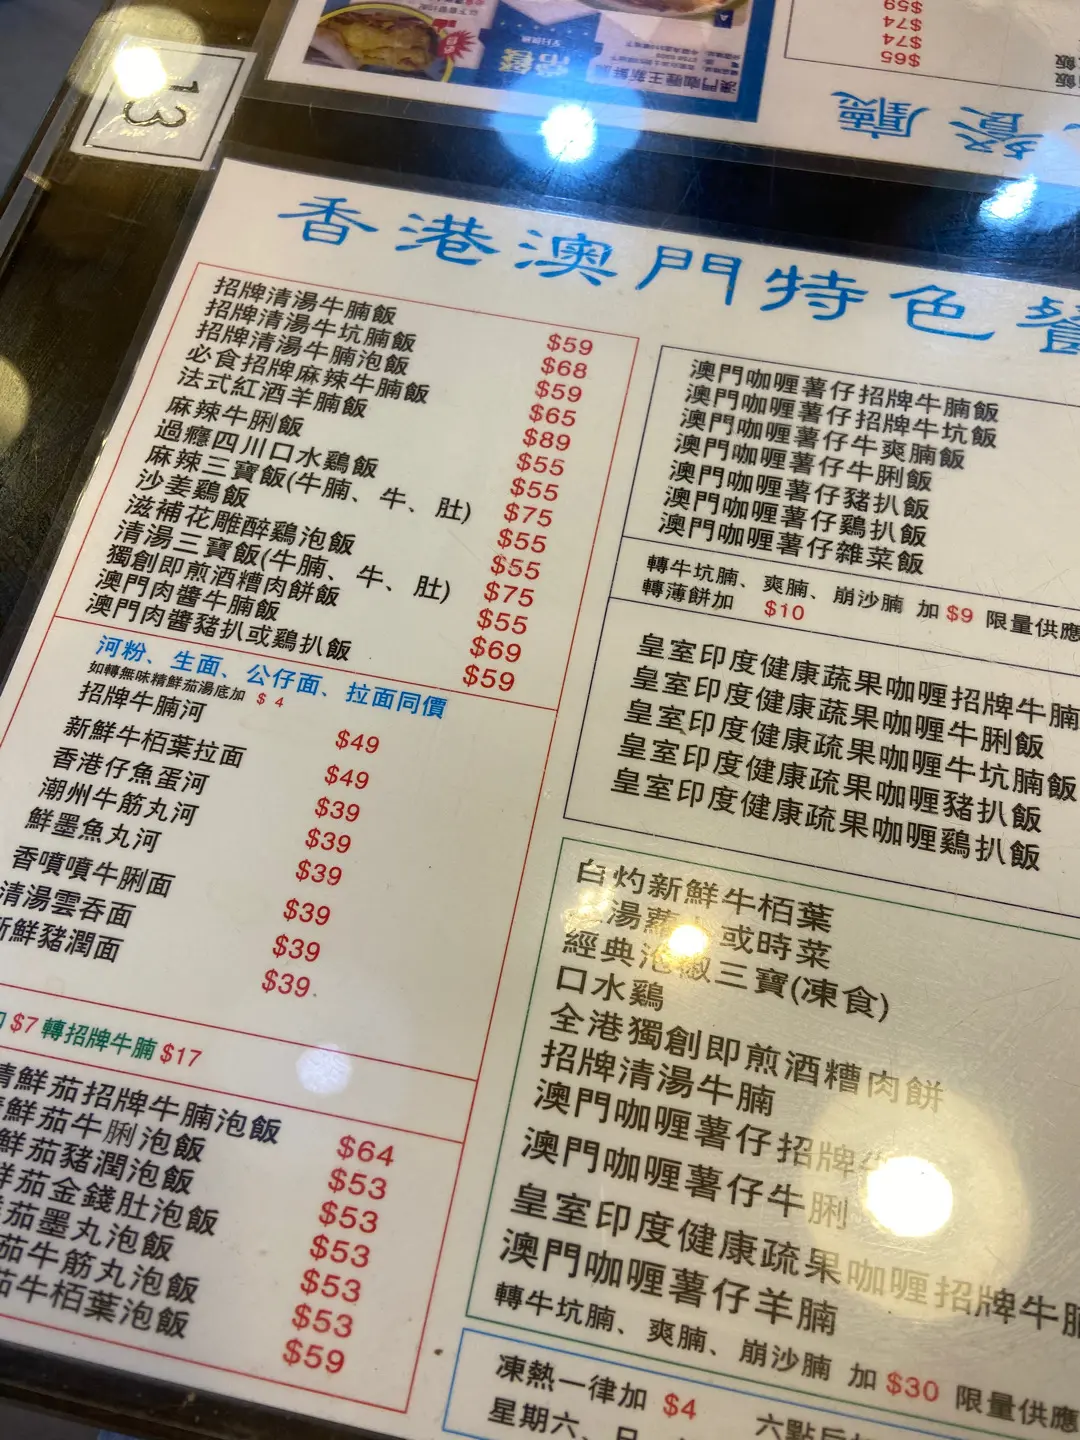 $59
$74
$74
$65
澳門咖喱王新鮮
13
香港澳門特色餐
招牌清湯牛腩飯 $59
招牌清湯牛坑腩飯 $68
招牌清湯牛腩泡飯 $59
必食招牌麻辣牛腩飯 $65
法式紅酒羊腩飯 $89
麻辣牛脷飯 $55
過癮四川口水鷄飯 $55
麻辣三寶飯(牛腩、牛、肚) $75
沙姜鷄飯 $55
滋補花雕醉鷄泡飯 $55
清湯三寶飯(牛腩、牛、肚) $75
獨創即煎酒糟肉餅飯 $55
澳門肉醬牛腩飯 $69
澳門肉醬豬扒或鷄扒飯 $59
河粉、生面、公仔面、拉面同價
如轉無味精鮮茄湯底加 $ 4
招牌牛腩河 $49
新鮮牛栢葉拉面 $49
香港仔魚蛋河 $39
潮州牛筋丸河 $39
鮮墨魚丸河 $39
香噴噴牛脷面 $39
清湯雲吞面 $39
新鮮豬潤面 $39
$7 轉招牌牛腩 $17
精鮮茄招牌牛腩泡飯 $64
鮮茄牛脷泡飯 $53
鮮茄豬潤泡飯 $53
鮮茄金錢肚泡飯 $53
茄墨丸泡飯 $53
茄牛筋丸泡飯 $53
茄牛栢葉泡飯 $59
澳門咖喱薯仔招牌牛腩飯
澳門咖喱薯仔招牌牛坑飯
澳門咖喱薯仔牛爽腩飯
澳門咖喱薯仔牛脷飯
澳門咖喱薯仔豬扒飯
澳門咖喱薯仔鷄扒飯
澳門咖喱薯仔雜菜飯
轉牛坑腩、爽腩、崩沙腩 加 $9 限量供應
轉薄餅加 $10
皇室印度健康蔬果咖喱招牌牛腩
皇室印度健康蔬果咖喱牛脷飯
皇室印度健康疏果咖喱牛坑腩飯
皇室印度健康疏果咖喱豬扒飯
皇室印度健康疏果咖喱鷄扒飯
白灼新鮮牛栢葉
湯蘿 或時菜
經典泡椒三寶(凍食)
口水鷄
全港獨創即煎酒糟肉餅
招牌清湯牛腩
澳門咖喱薯仔招牌牛
澳門咖喱薯仔牛脷
皇室印度健康疏果咖喱招牌牛腩
澳門咖喱薯仔羊腩
轉牛坑腩、爽腩、崩沙腩 加 $30 限量供應
凍熱一律加 $4
星期六、日
六點后